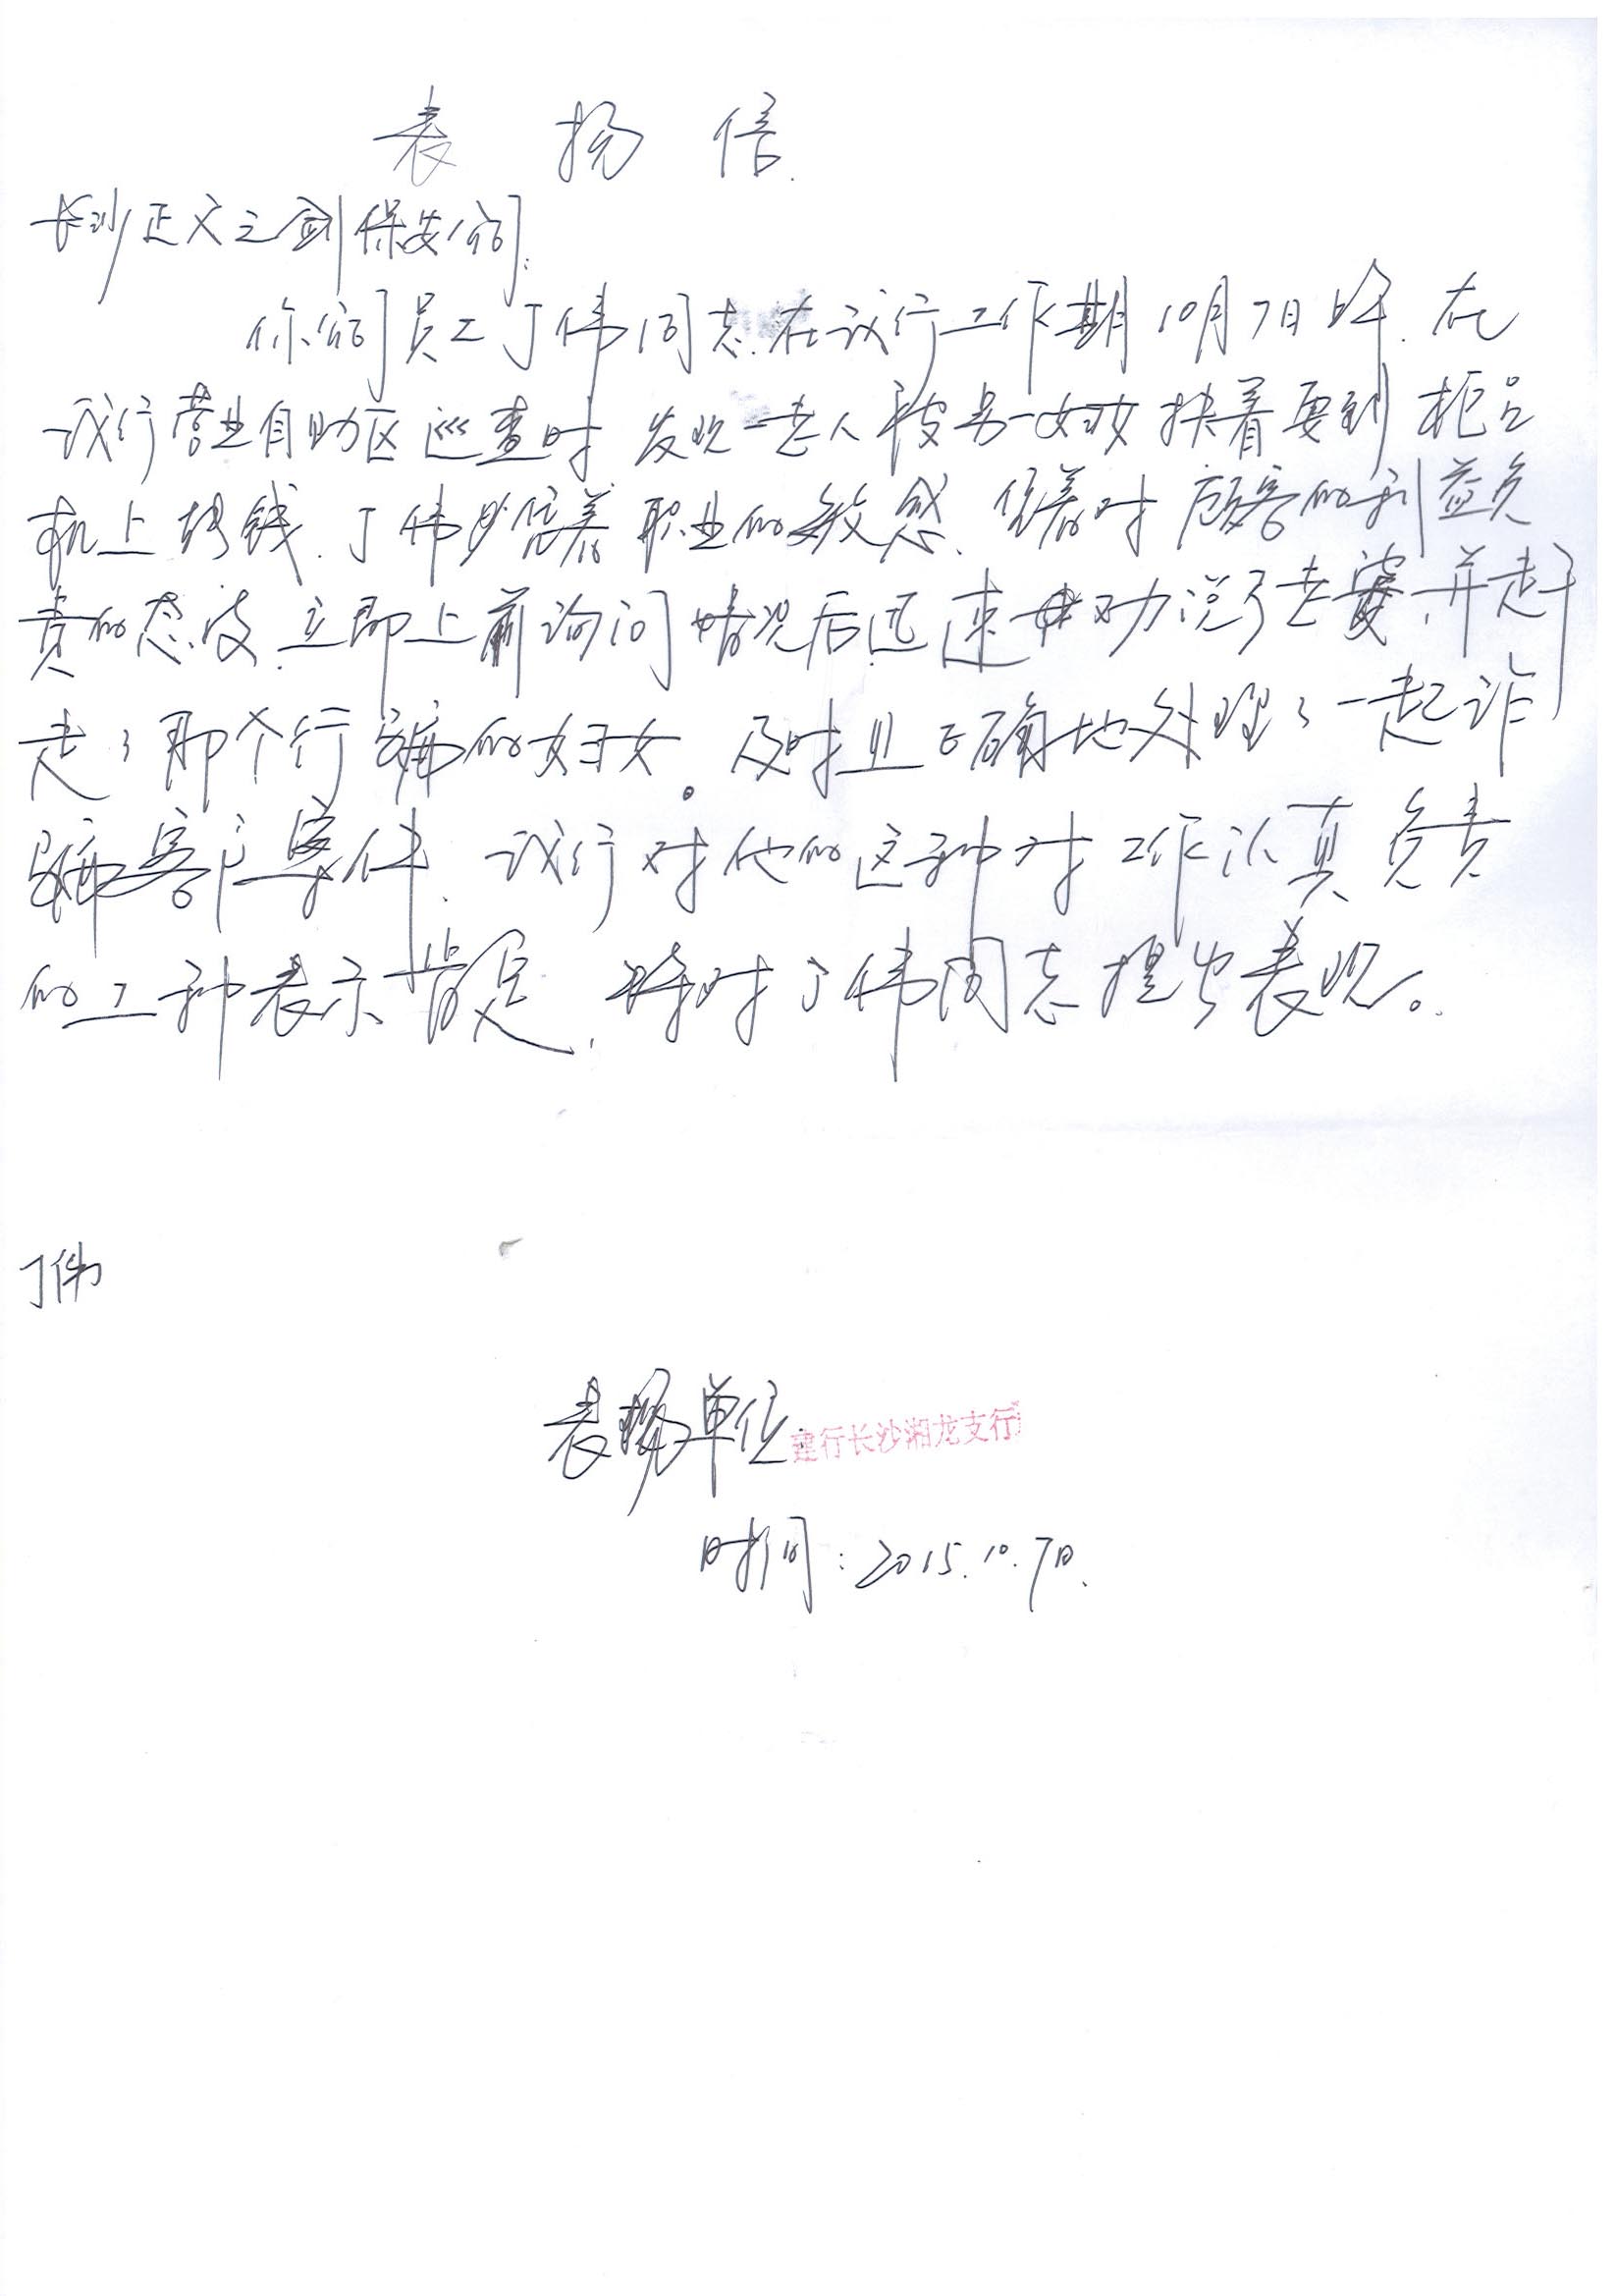 表扬信
长沙正义之剑保安公司:
你公司员工丁伟同志.在我行工作期10月7日中午.在
我行营业自助区巡查时 发现一老人被另一妇女扶着要到柜员
机上转钱.丁伟凭着职业的敏感.凭着对顾客的利益负
责的态度.立即上前询问情况后迅速劝说了老婆,并赶
走了那个行骗的妇女。及时且正确地处理了一起诈
骗客户事件.我行对他的这种对工作认真负责
的工种表示肯定,特对丁伟同志提出表现。
丁伟
表扬单位 建行长沙湘龙支行
时间:2015.10.7日.